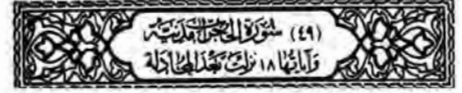 (٤٩) سُورَة الحجرات مدنيّة
وَآياتها ١٨ نزلت بَعْد المجَادلة